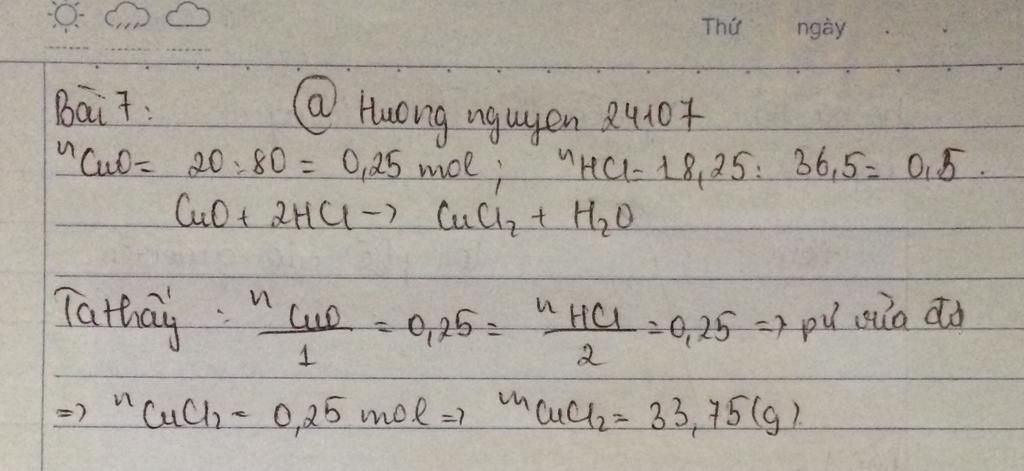 Thứ ngày . .
Bài 7: @ Huong nguyen 24107
nCuO = 20 : 80 = 0,25 mol ; nHCl = 18,25 : 36,5 = 0,5 .
CuO + 2HCl -> CuCl₂ + H₂O
Ta thấy : nCuO/1 = 0,25 = nHCl/2 = 0,25 => pứ vừa đủ
=> nCuCl₂ = 0,25 mol => mCuCl₂ = 33,75 (g).